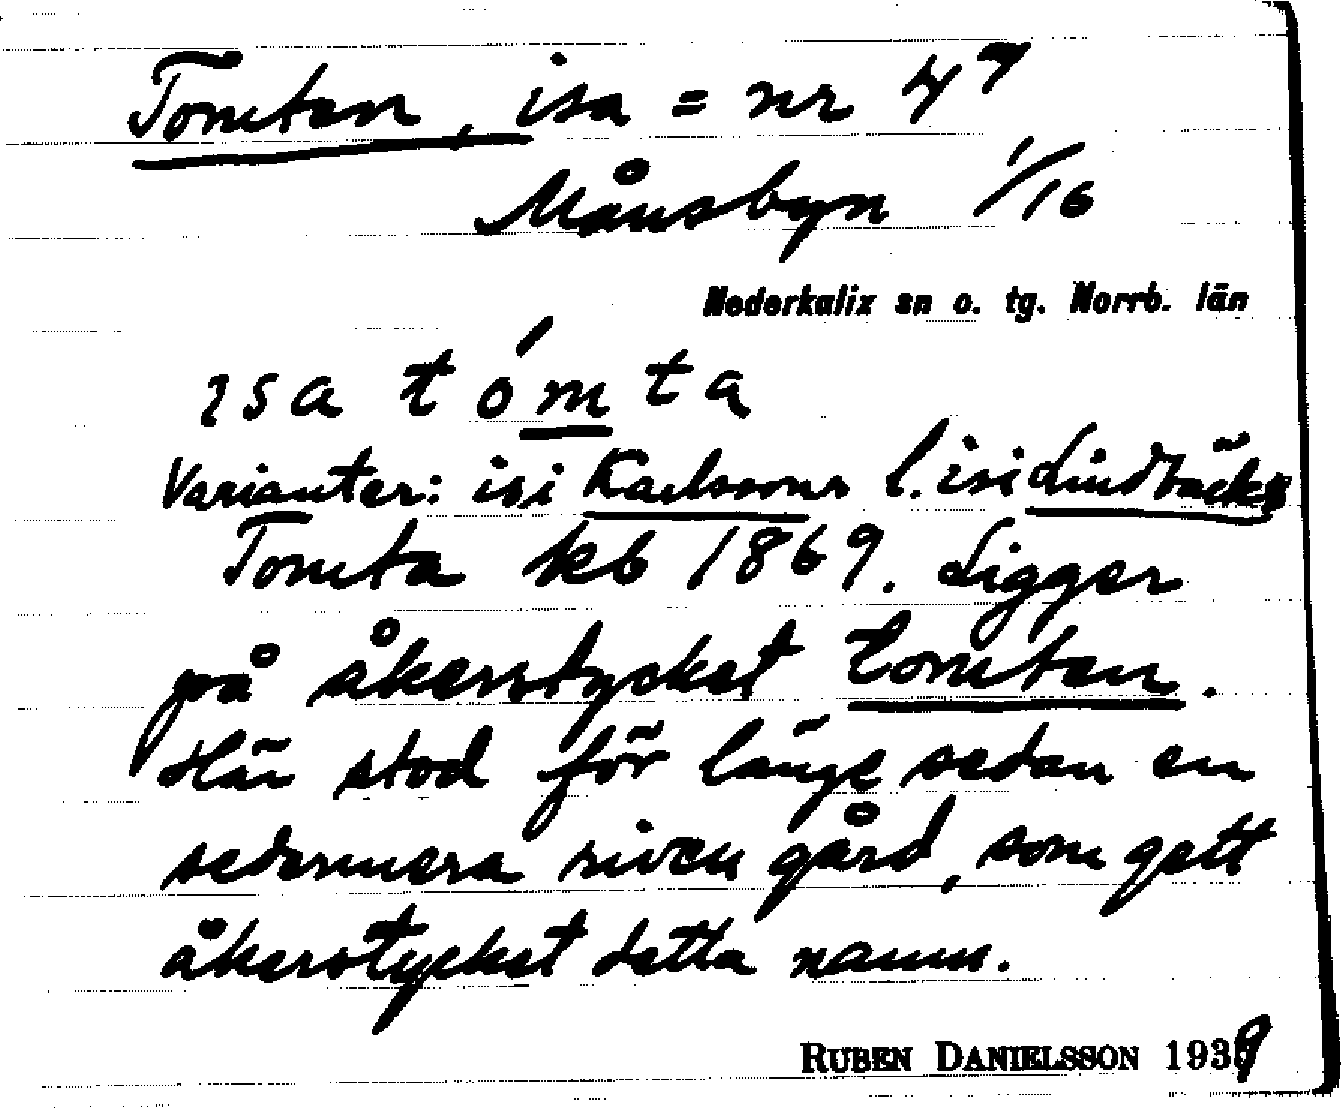 Tomten, isa = nr 47
Månsbyn 1/16
Nederkalix sn o. tg. Norrb. län
ısa tómta
Varianter: isi Karlssons l. isi Lindbäcks
Tomta kb 1869. Ligger
på åkerstycket tomten.
Här stod för länge sedan en
sedermera riven gård, som gett
åkerstycket detta namn.
RUBEN DANIELSSON 1939